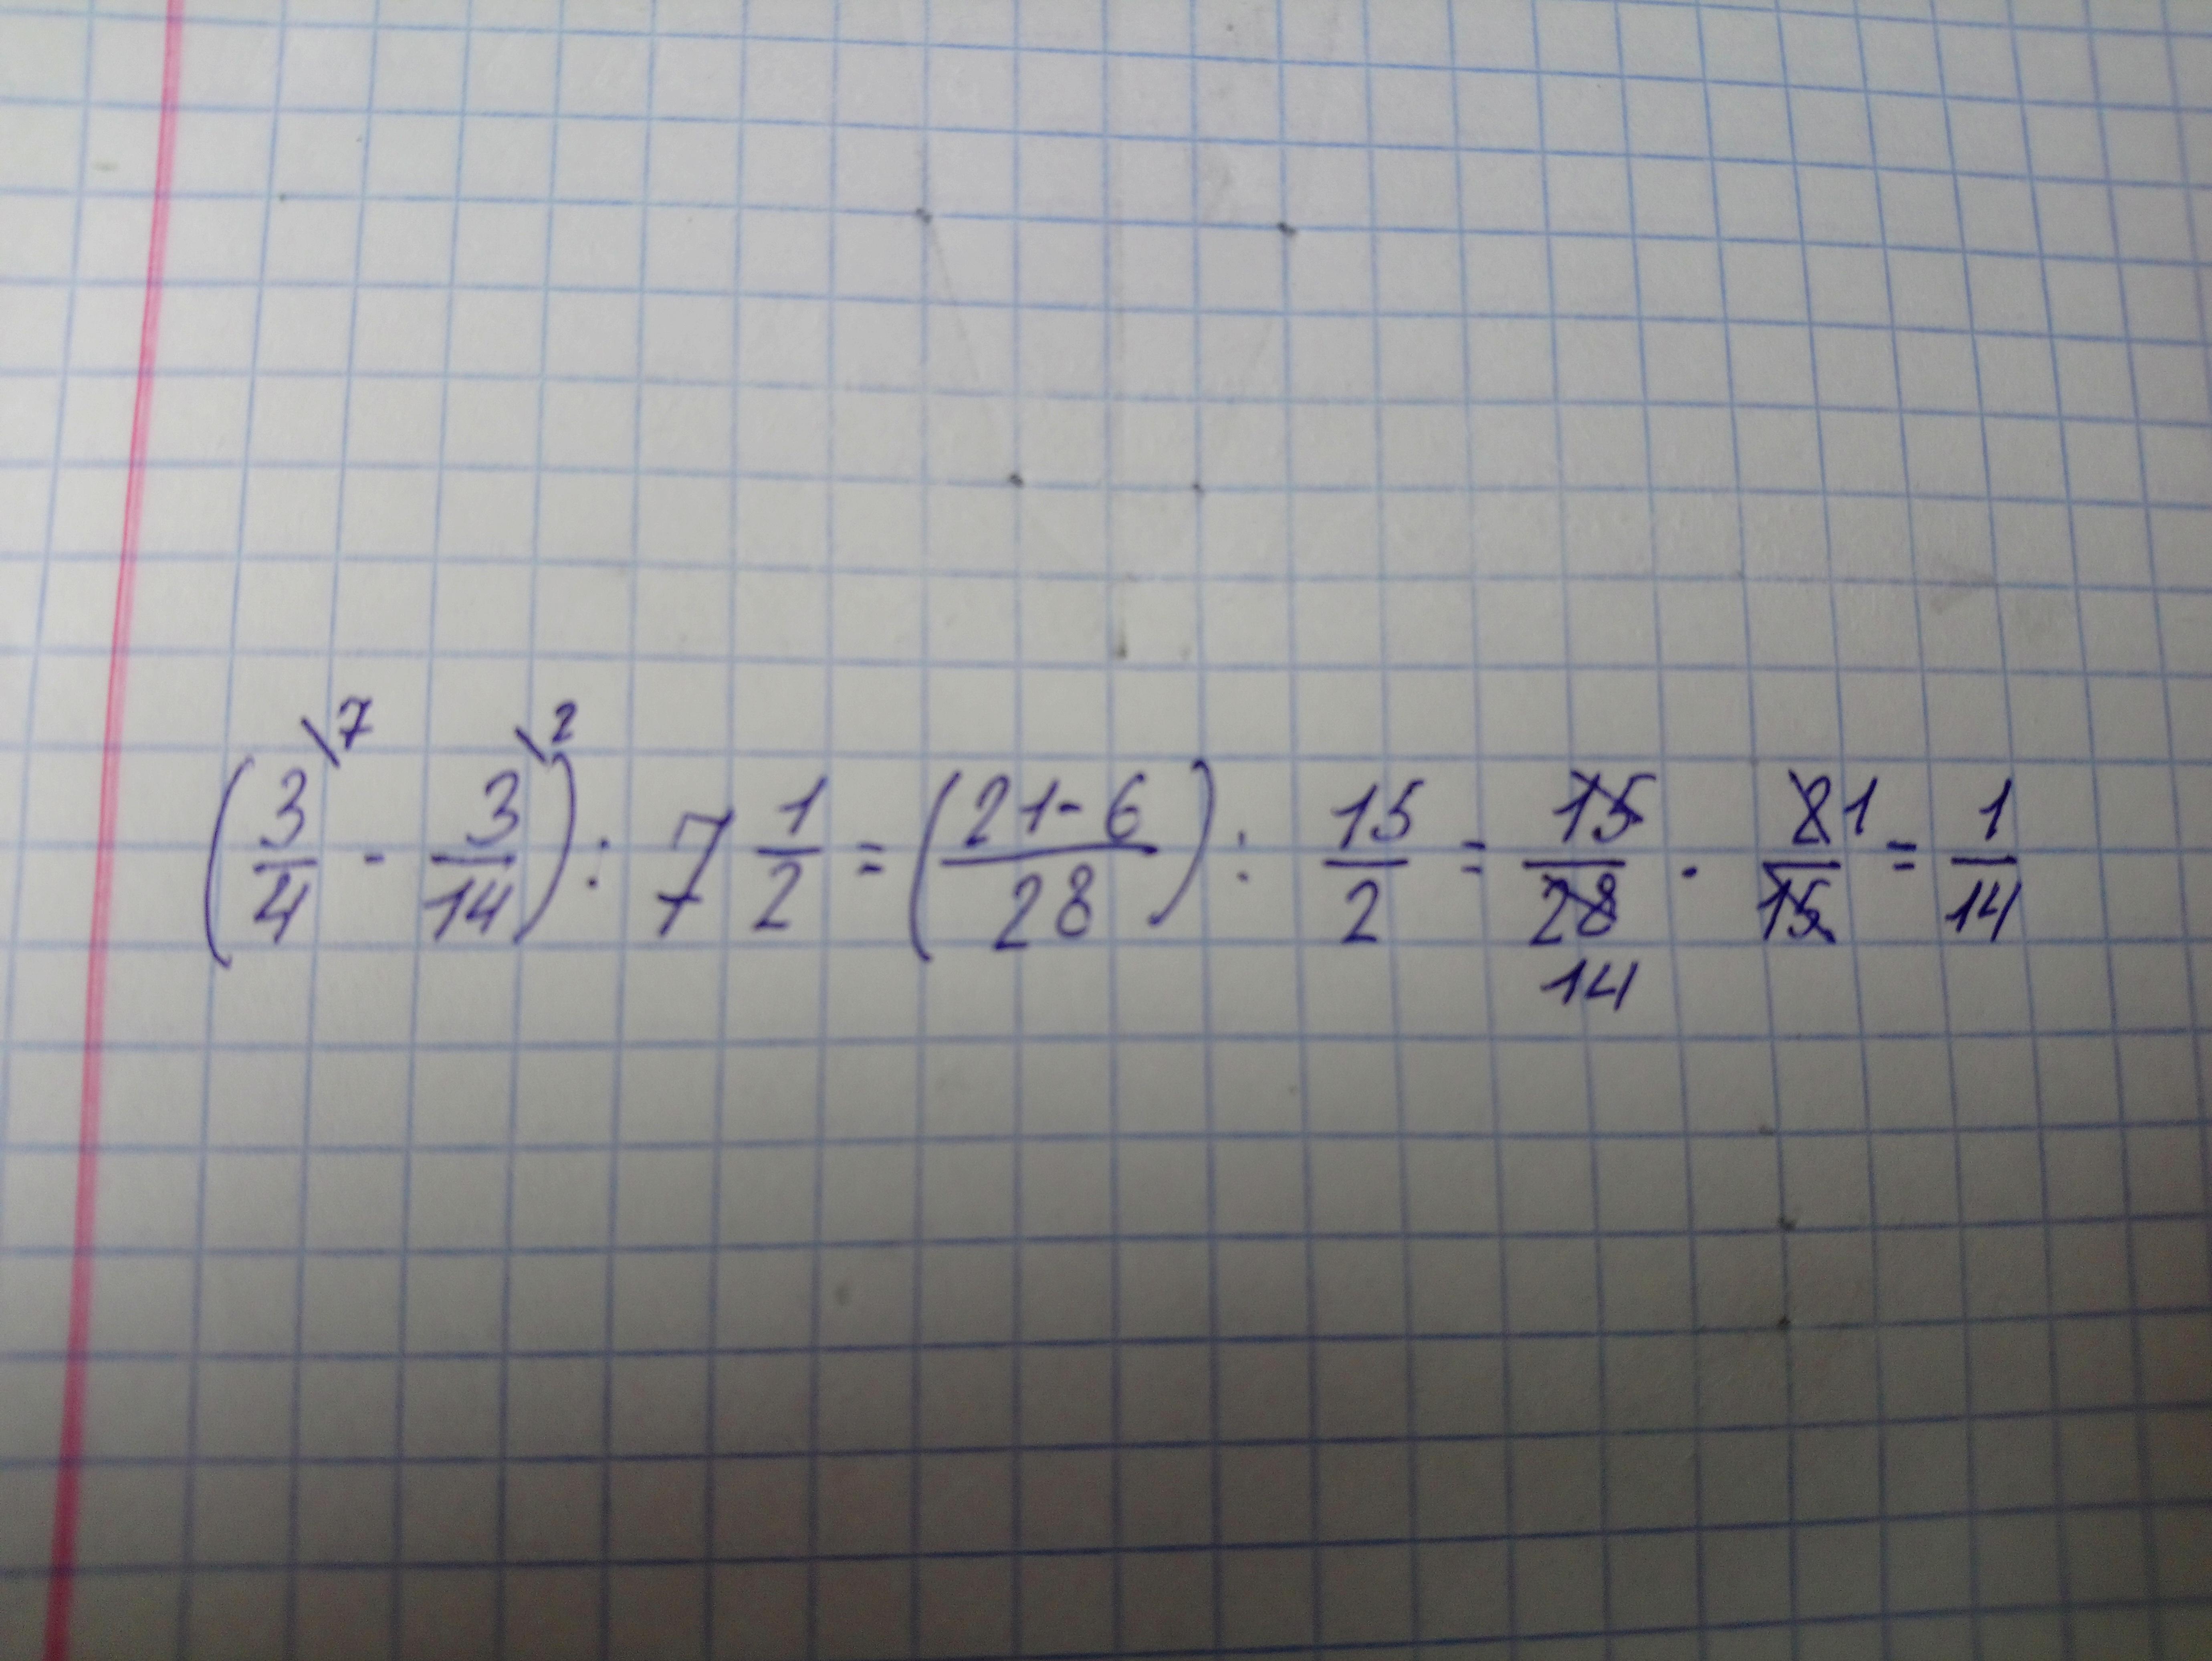 (3/4 \7 - 3/14 \2) : 7 1/2 = ((21-6)/28) : 15/2 = 15/28 14 · 2/15 1 = 1/14